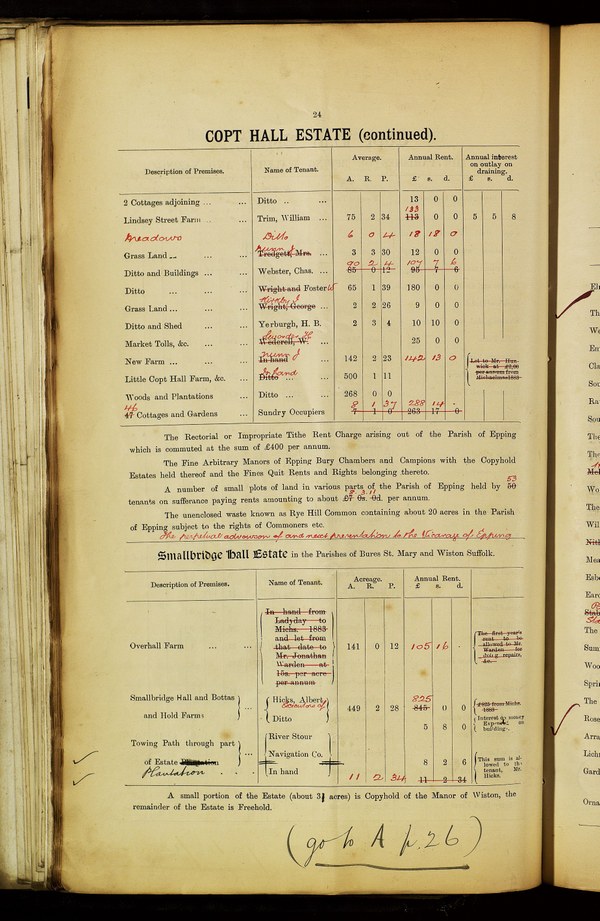 24
COPT HALL ESTATE (continued).
Description of Premises. Name of Tenant. Average. A. R. P. Annual Rent. £ s. d. Annual interest on outlay on draining. £ s. d.
2 Cottages adjoining ... ... Ditto .. ... 13 0 0
133
Lindsey Street Farm .. ... Trim, William ... 75 2 34 113 0 0 5 5 8
Meadows Ditto 6 0 4 18 18 0
Grass Land ... ... Tredgett, Mrs. ... 3 3 30 12 0 0
90 2 4 107 7 6
Ditto and Buildings ... ... Webster, Chas. ... 85 0 12 95 7 6
Ditto ... ... Wright and Foster W 65 1 39 180 0 0
Grass Land ... ... ... Wright, George ... 2 2 26 9 0 0
Ditto and Shed ... ... Yerburgh, H. B. 2 3 4 10 10 0
Market Tolls, &c. ... ... 25 0 0
New Farm ... ... ... In hand ... 142 2 23 142 13 0
In hand
Little Copt Hall Farm, &c. ... Ditto ... ... 500 1 11
Woods and Plantations ... Ditto ... ... 268 0 0
46 8 1 37 288 14 .
47 Cottages and Gardens ... Sundry Occupiers 7 1 0 263 17 0
Let to Mr. from Michaelmas 1883
The Rectorial or Impropriate Tithe Rent Charge arising out of the Parish of Epping
which is commuted at the sum of £400 per annum.
The Fine Arbitrary Manors of Epping Bury Chambers and Campions with the Copyhold
Estates held thereof and the Fines Quit Rents and Rights belonging thereto.
53
A number of small plots of land in various parts of the Parish of Epping held by 50
tenants on sufferance paying rents amounting to about £7 0s. 0d. per annum.
The unenclosed waste known as Rye Hill Common containing about 20 acres in the Parish
of Epping subject to the rights of Commoners etc.
The perpetual advowson of and next presentation to the Vicarage of Epping
Smallbridge Hall Estate in the Parishes of Bures St. Mary and Wiston Suffolk.
Description of Premises. Name of Tenant. Acreage. A. R. P. Annual Rent. £ s. d.
In hand from
Ladyday to
Michs. 1883
and let from
that date to
Mr. Jonathan
Warden at
15s. per acre
per annum
Overhall Farm ... ... 141 0 12 105 16 .
The first year's
rent to be
allowed to Mr.
Warden for
doing repairs,
&c.
825
Smallbridge Hall and Bottas ... Hicks, Albert Executors of 449 2 28 845 0 0
from Michs. 1883
and Hold Farms Ditto 5 8 0
Interest on money
building.
Towing Path through part River Stour
of Estate ... Navigation Co. 8 2 6
Plantation . . In hand 11 2 34 11 2 34
This sum is allowed to the tenant, Mr. Hicks.
A small portion of the Estate (about 3½ acres) is Copyhold of the Manor of Wiston, the
remainder of the Estate is Freehold.
(go to A p. 26)